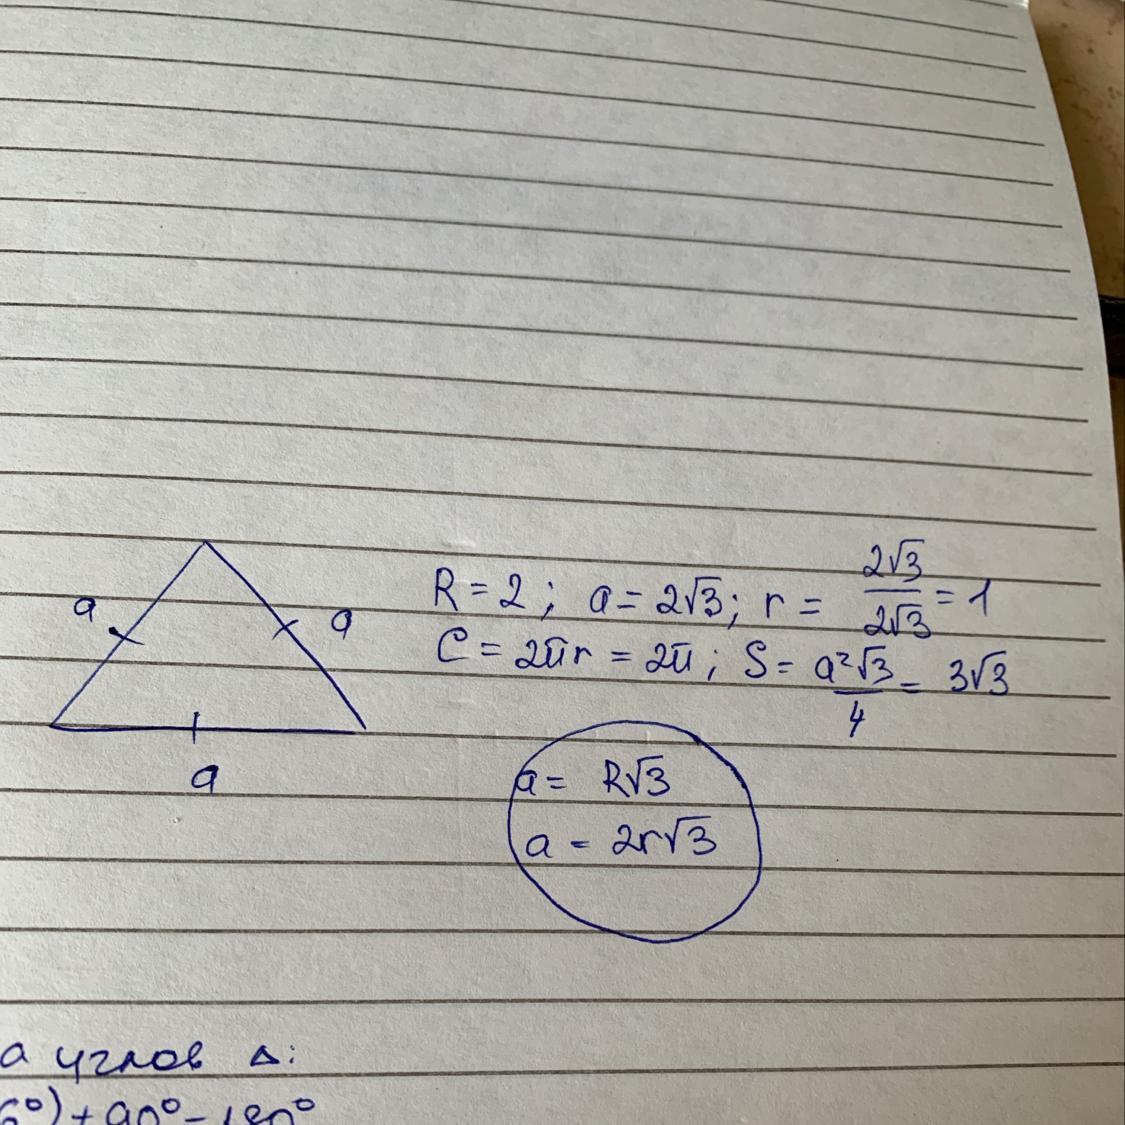 a
a
a
R = 2 ; a = 2√3; r = 2√3/2√3 = 1
C = 2πr = 2π ; S = a²√3/4 = 3√3
a = R√3
a = 2r√3
а углов Δ:
6°) + 90° - 180°